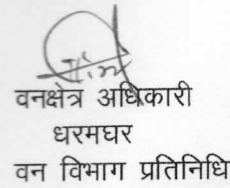 वनक्षेत्र अधिकारी
धरमघर
वन विभाग प्रतिनिधि